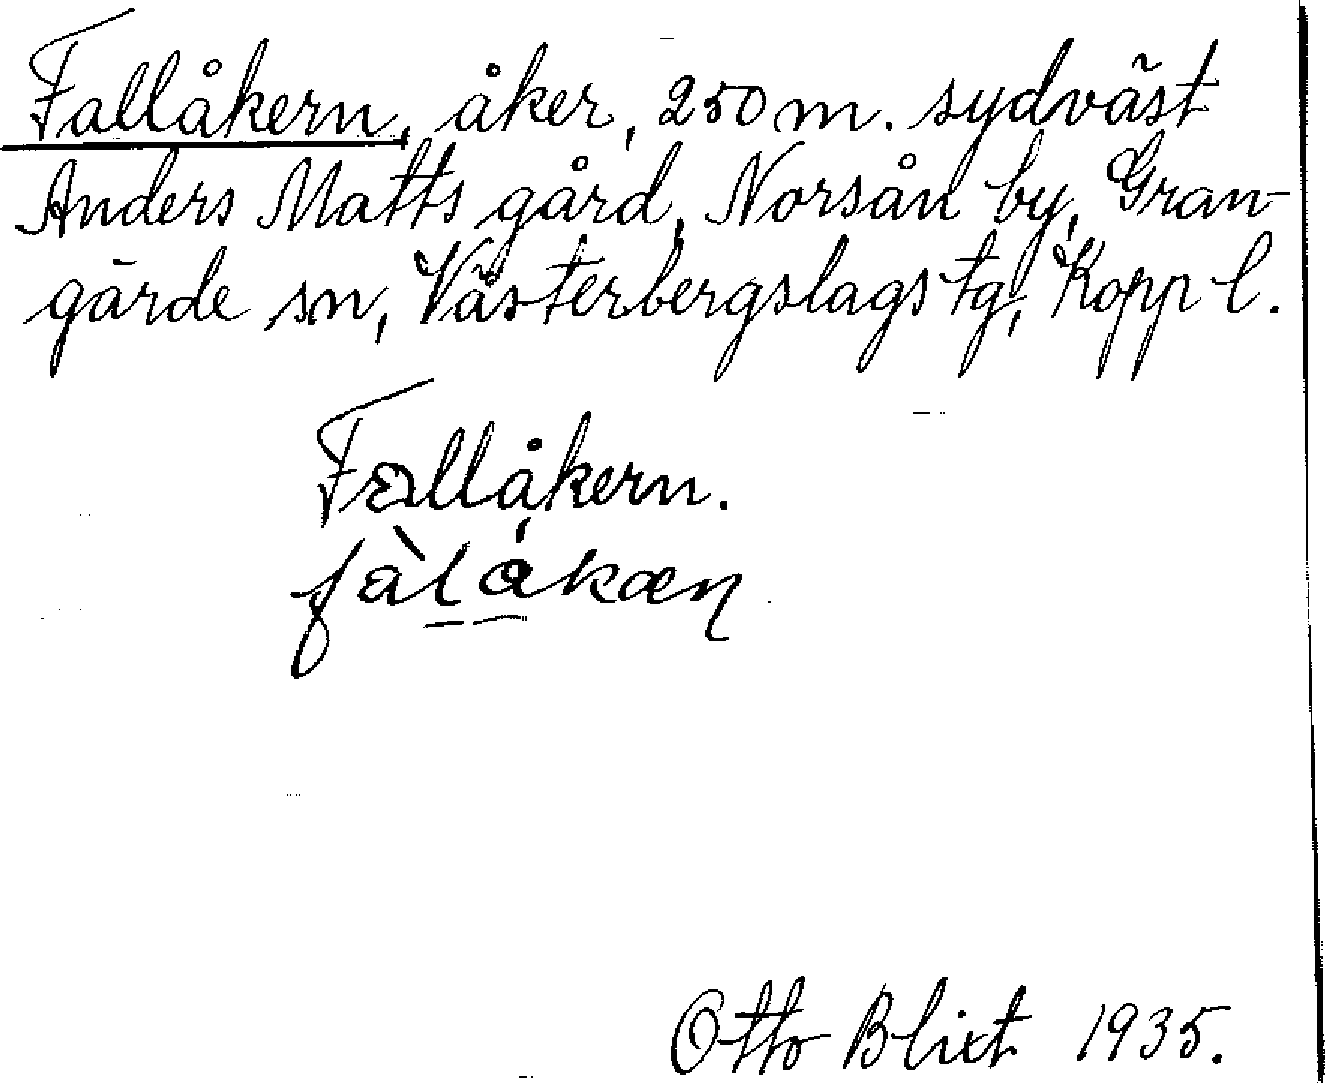 Fallåkern, åker, 250 m. sydväst
Anders Matts gård, Norsån by, Gran-
gärde sn, Västerbergslags tg, Kopp l.
Fallåkern.
fàlåkæn
Otto Blixt 1935.